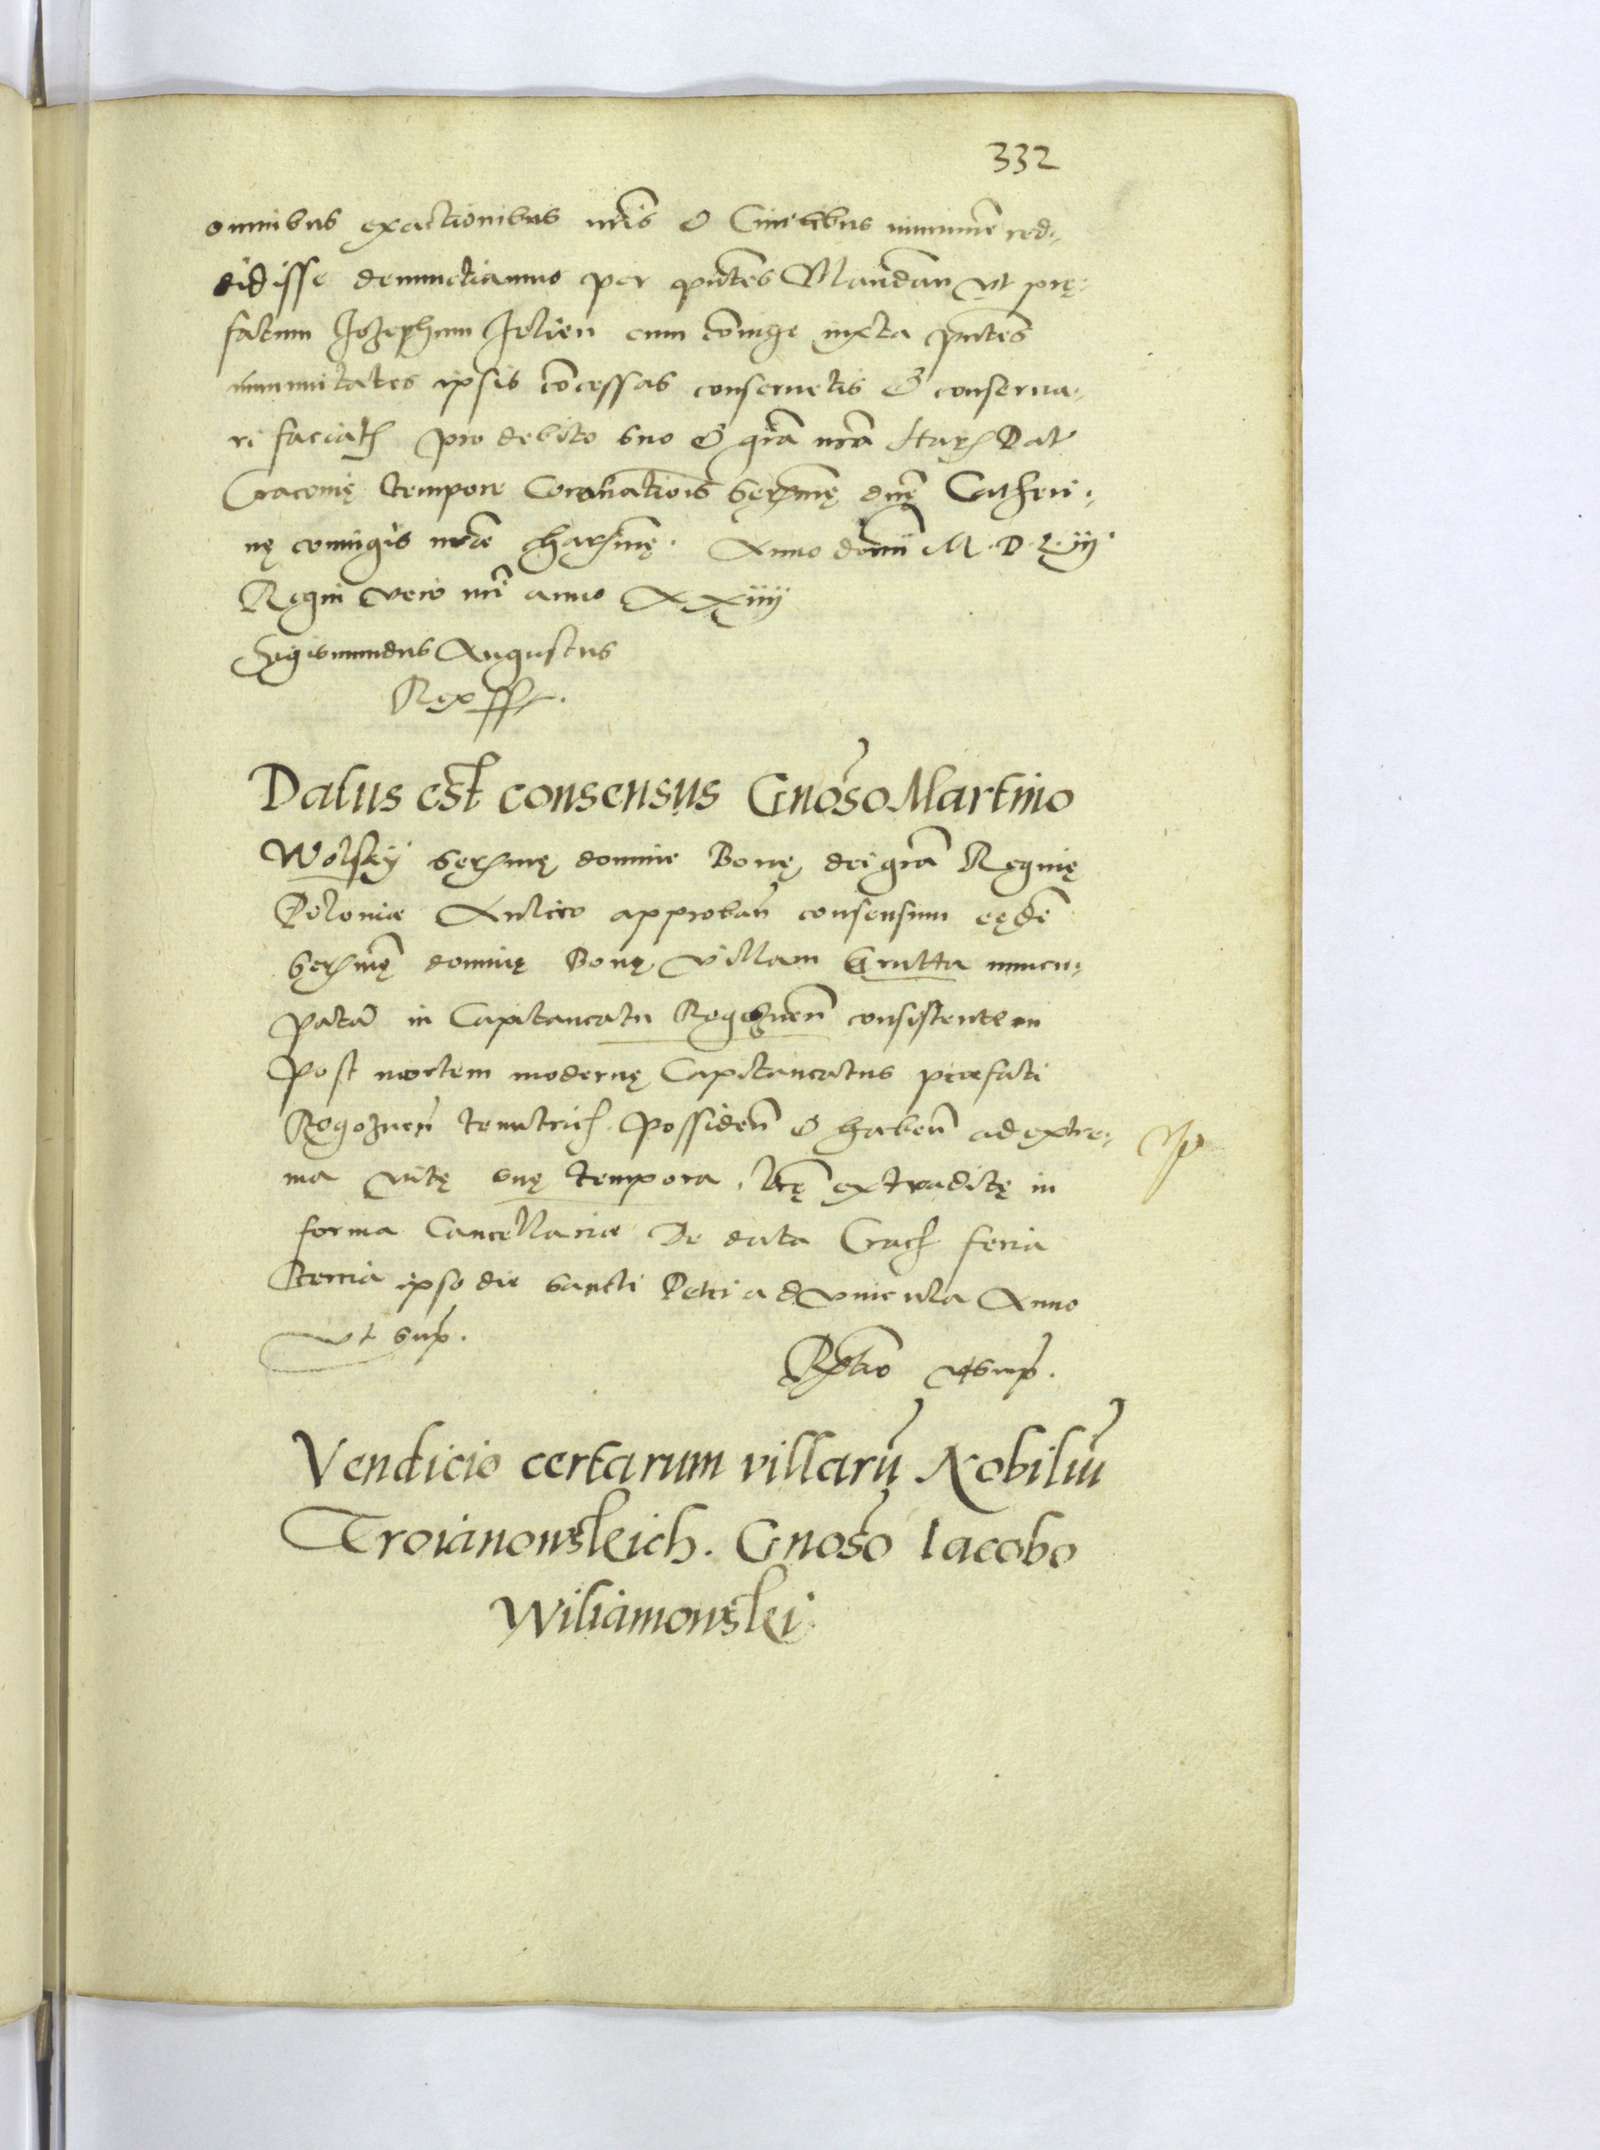 332
omnibus exactionibus nris & Civilibus immune red,
didisse denunctiamus per pntes Mandan ut prę,
fatum Jozephum Jelien cum coniuge iuxta pntes
immunitates ipsis concessas conservetis & conserva,
ri faciatis pro debito suo & gra nra Dat
Cracovię tempore Coronationis serzmę dnę Catheri,
nę coniugis nrae charzmę. Anno domi M.D.L.iii
Regni vero nri anno XXiiii
Sigismundus Augustus
Rex sst.
Datus est consensus Gnoso Martino
Wolsky serzmę domine Bonę dei gra Reginę
Poloniae Aulico approban consensum eędem
serzmę dominę Bonę villam Grutta nuncu,
patam in Capitaneatu Rogoznen consistentem
post mortem modernę Capitaneatus praefati
Rogoznen tenutricis possiden & haben ad extre,
ma vitę suę tempora. lrę extraditę in
forma Cancellariae De data Crac feria
tercia ipso die sancti Petri ad vincula Anno
ut sup.
Rlatio ut sup.
Vendicio certarum villaru Nobiliu
Troianowskich. Gnoso Iacobo
Wiliamowski